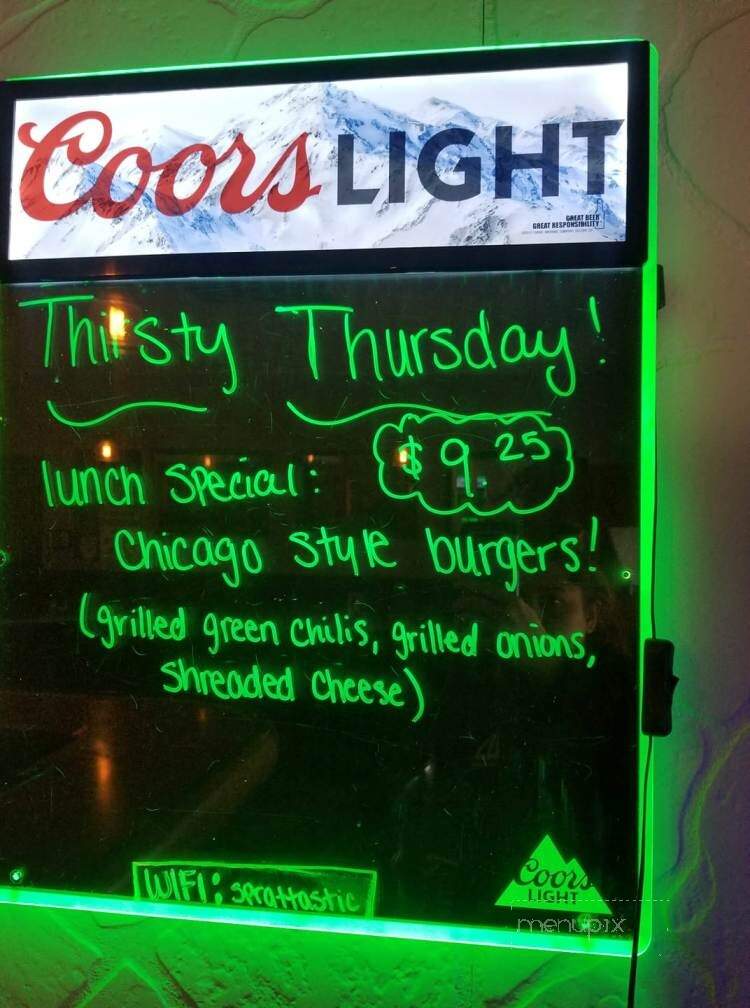 Coors LIGHT
GREAT BEER
GREAT RESPONSIBILITY
Thirsty Thursday!
lunch special: $9 25
Chicago style burgers!
(grilled green chilis, grilled onions,
shreaded cheese)
WIFI: sprattastic
Coors
LIGHT
menupix